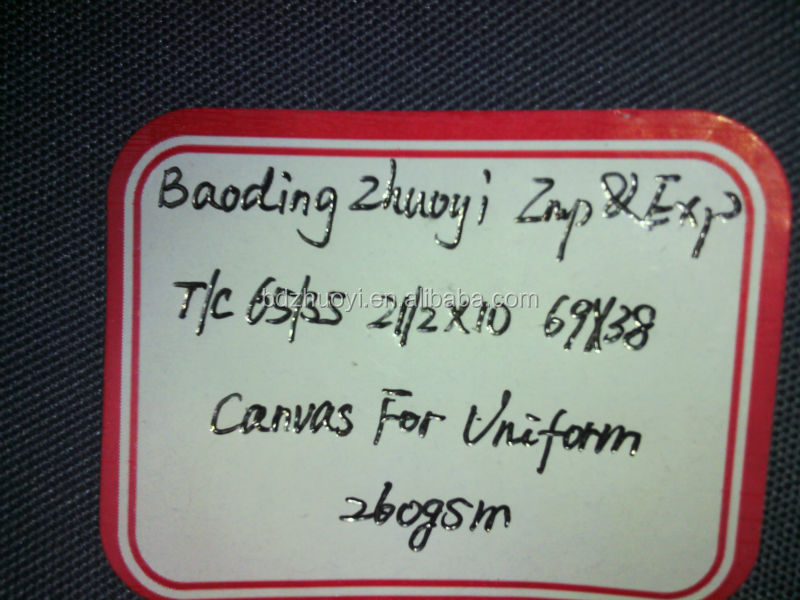 Baoding Zhuoyi Imp & Exp
T/C 65/35 21/2X10 69X38
bdzhuoyi.en.alibaba.com
Canvas For Uniform
260gsm